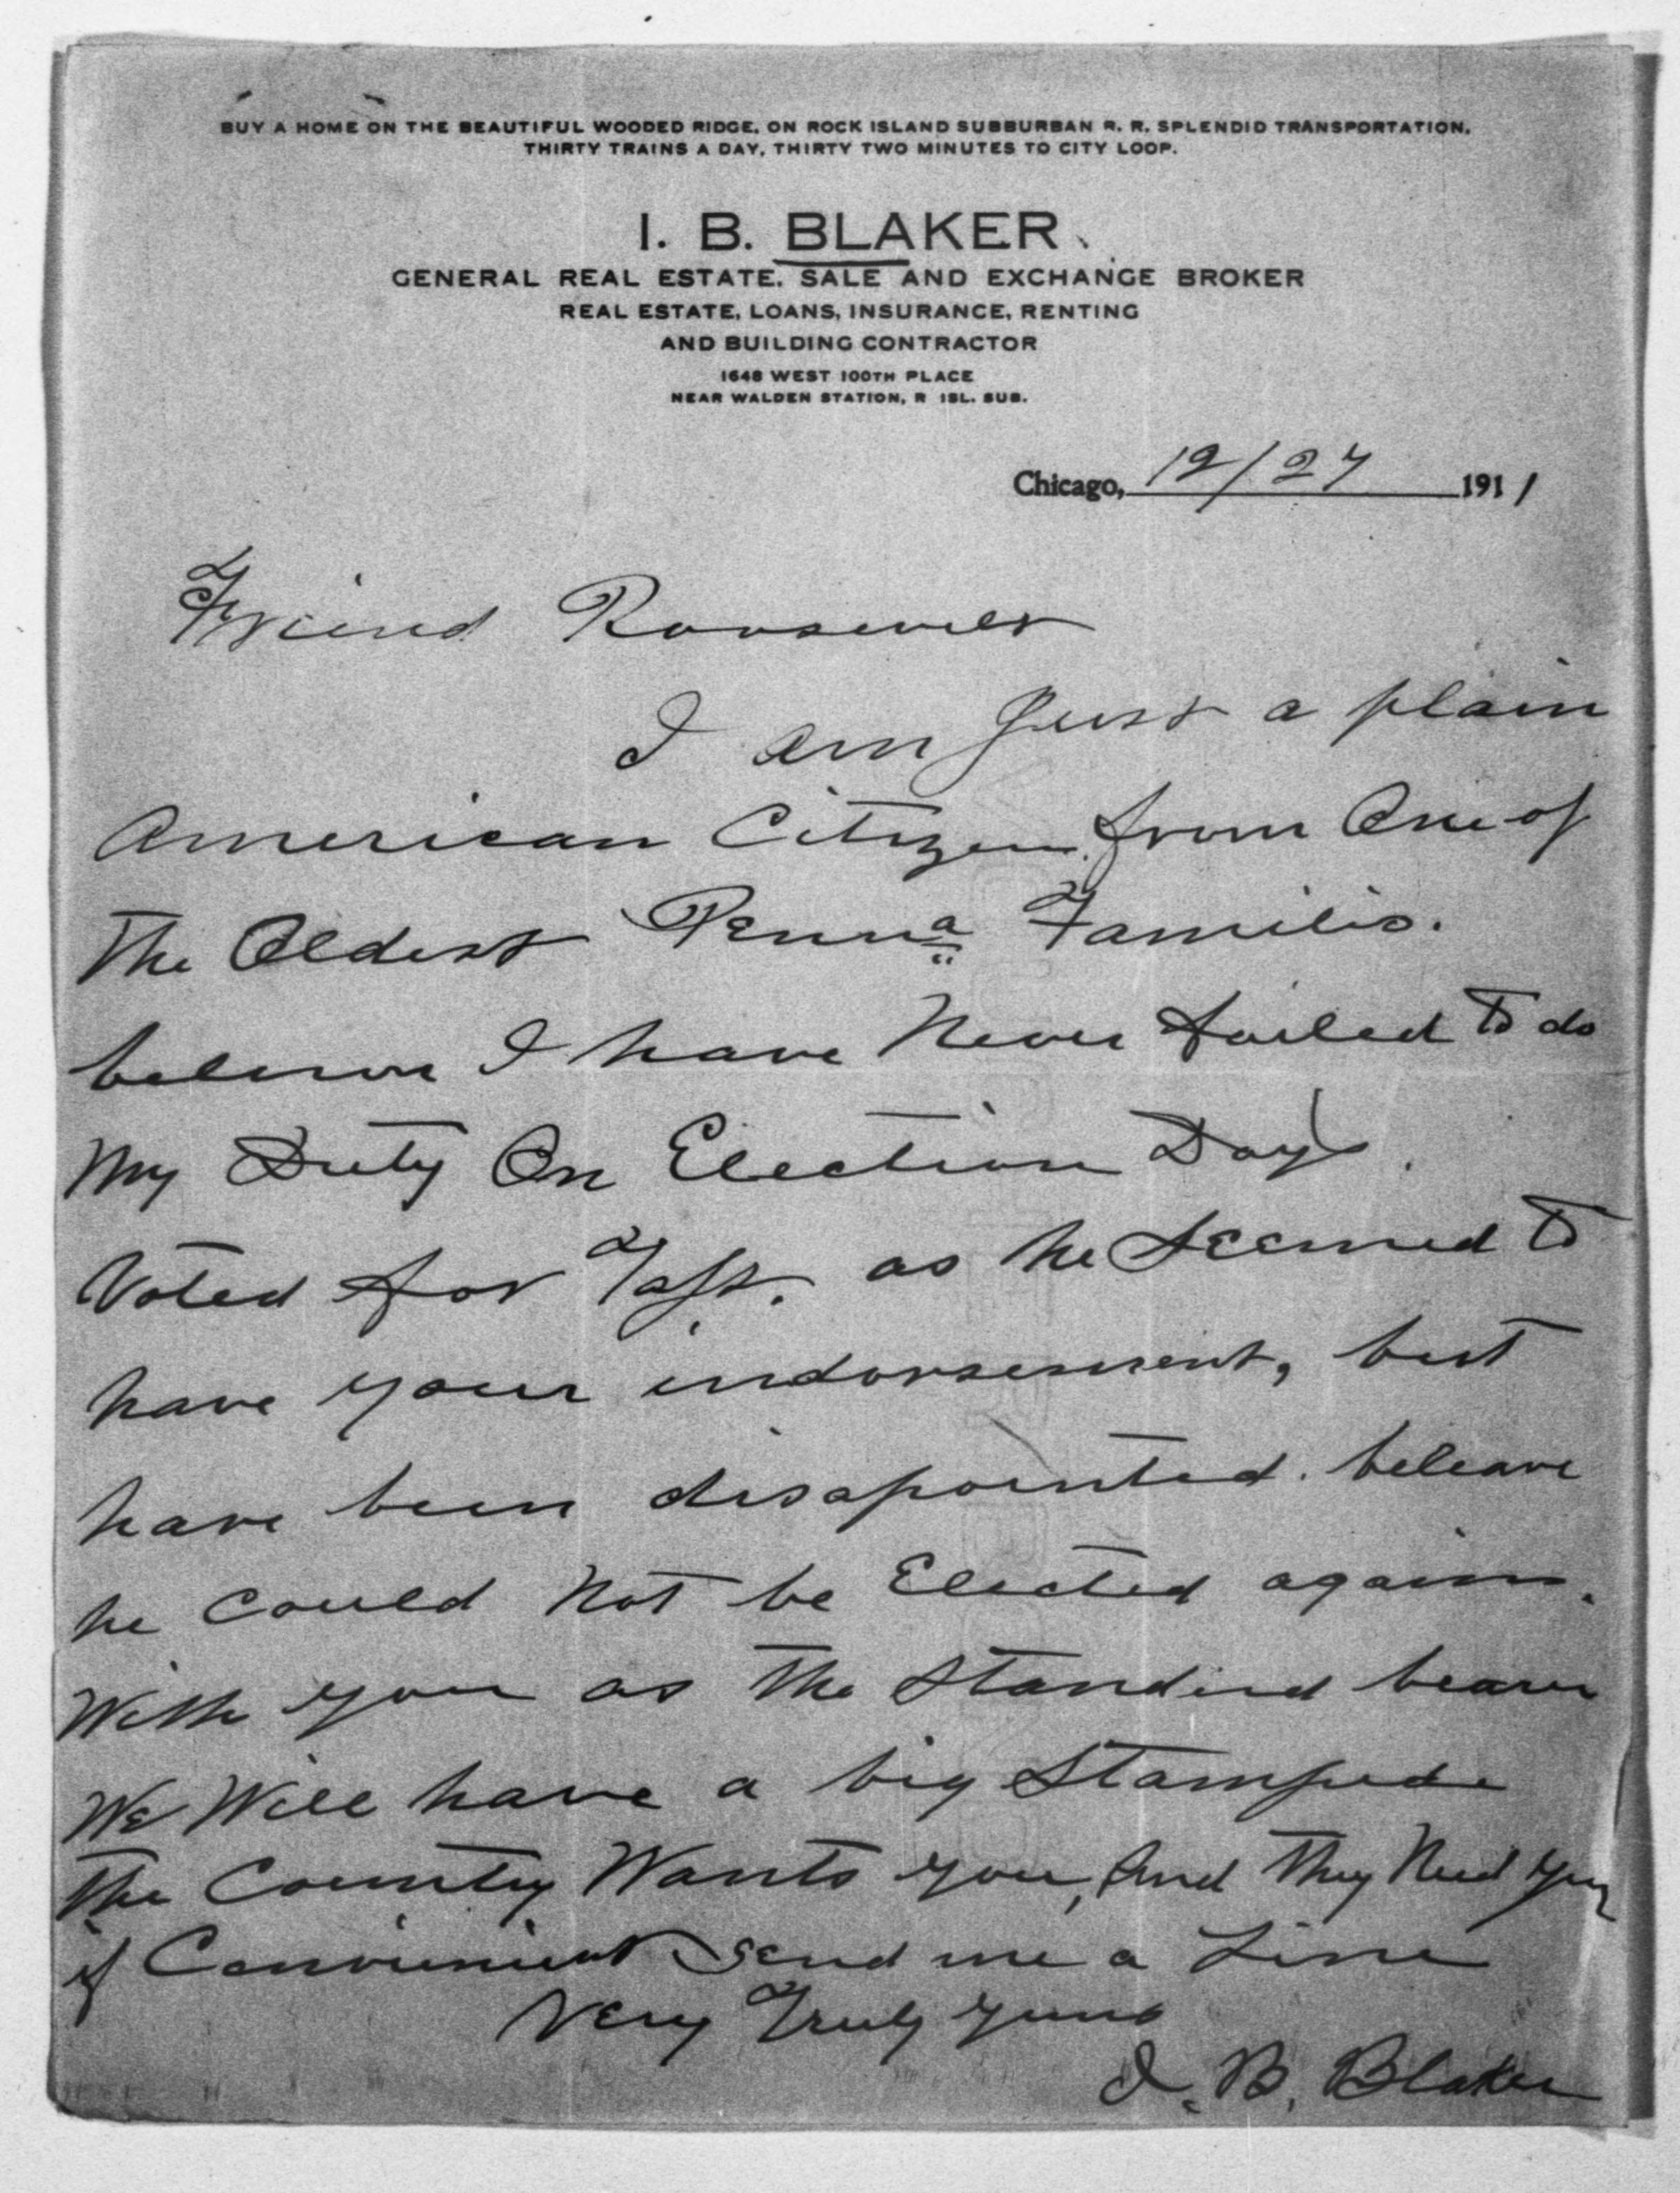 BUY A HOME ON THE BEAUTIFUL WOODED RIDGE, ON ROCK ISLAND SUBBURBAN R. R. SPLENDID TRANSPORTATION,
THIRTY TRAINS A DAY, THIRTY TWO MINUTES TO CITY LOOP.
I. B. BLAKER
GENERAL REAL ESTATE, SALE AND EXCHANGE BROKER
REAL ESTATE, LOANS, INSURANCE, RENTING
AND BUILDING CONTRACTOR
1648 WEST 100TH PLACE
NEAR WALDEN STATION, R ISL. SUB.
Chicago, 12/27 1911
Friend Roosevelt
I am Just a plain
American Citizen from One of
The Oldest Penna Familis.
beleave I have Never failed To do
My Duty On Election Days.
Voted for Taft. as he Seemed To
have your indorsement, but
have been disapointed. beleave
he could Not be Elected again.
With you as The Standerd bearer
We Will have a big Stampede
The Country Wants you, And They Need you
if Convienient Send me a Line
Very Truly yours
I. B. Blaker